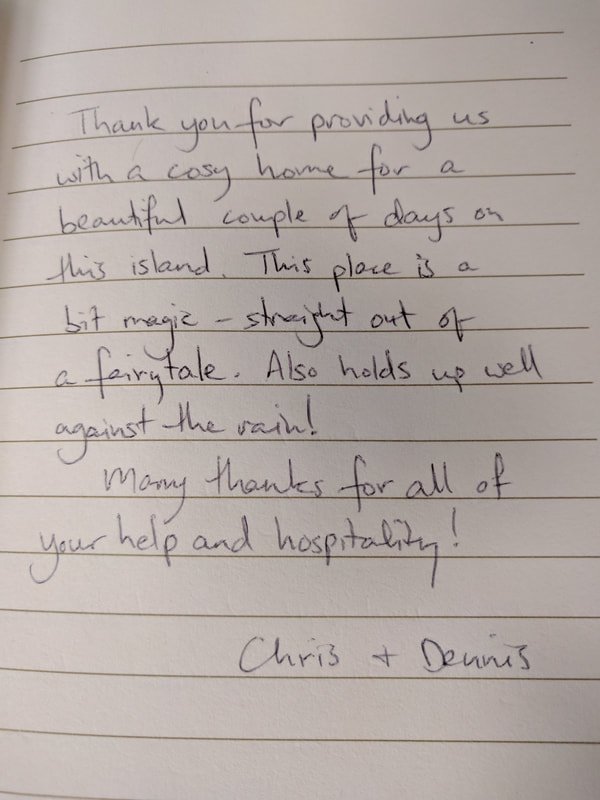 Thank you for providing us
with a cosy home for a
beautiful couple of days on
this island. This place is a
bit magic - straight out of
a fairytale. Also holds up well
against the rain!
Many thanks for all of
your help and hospitality!
Chris + Dennis